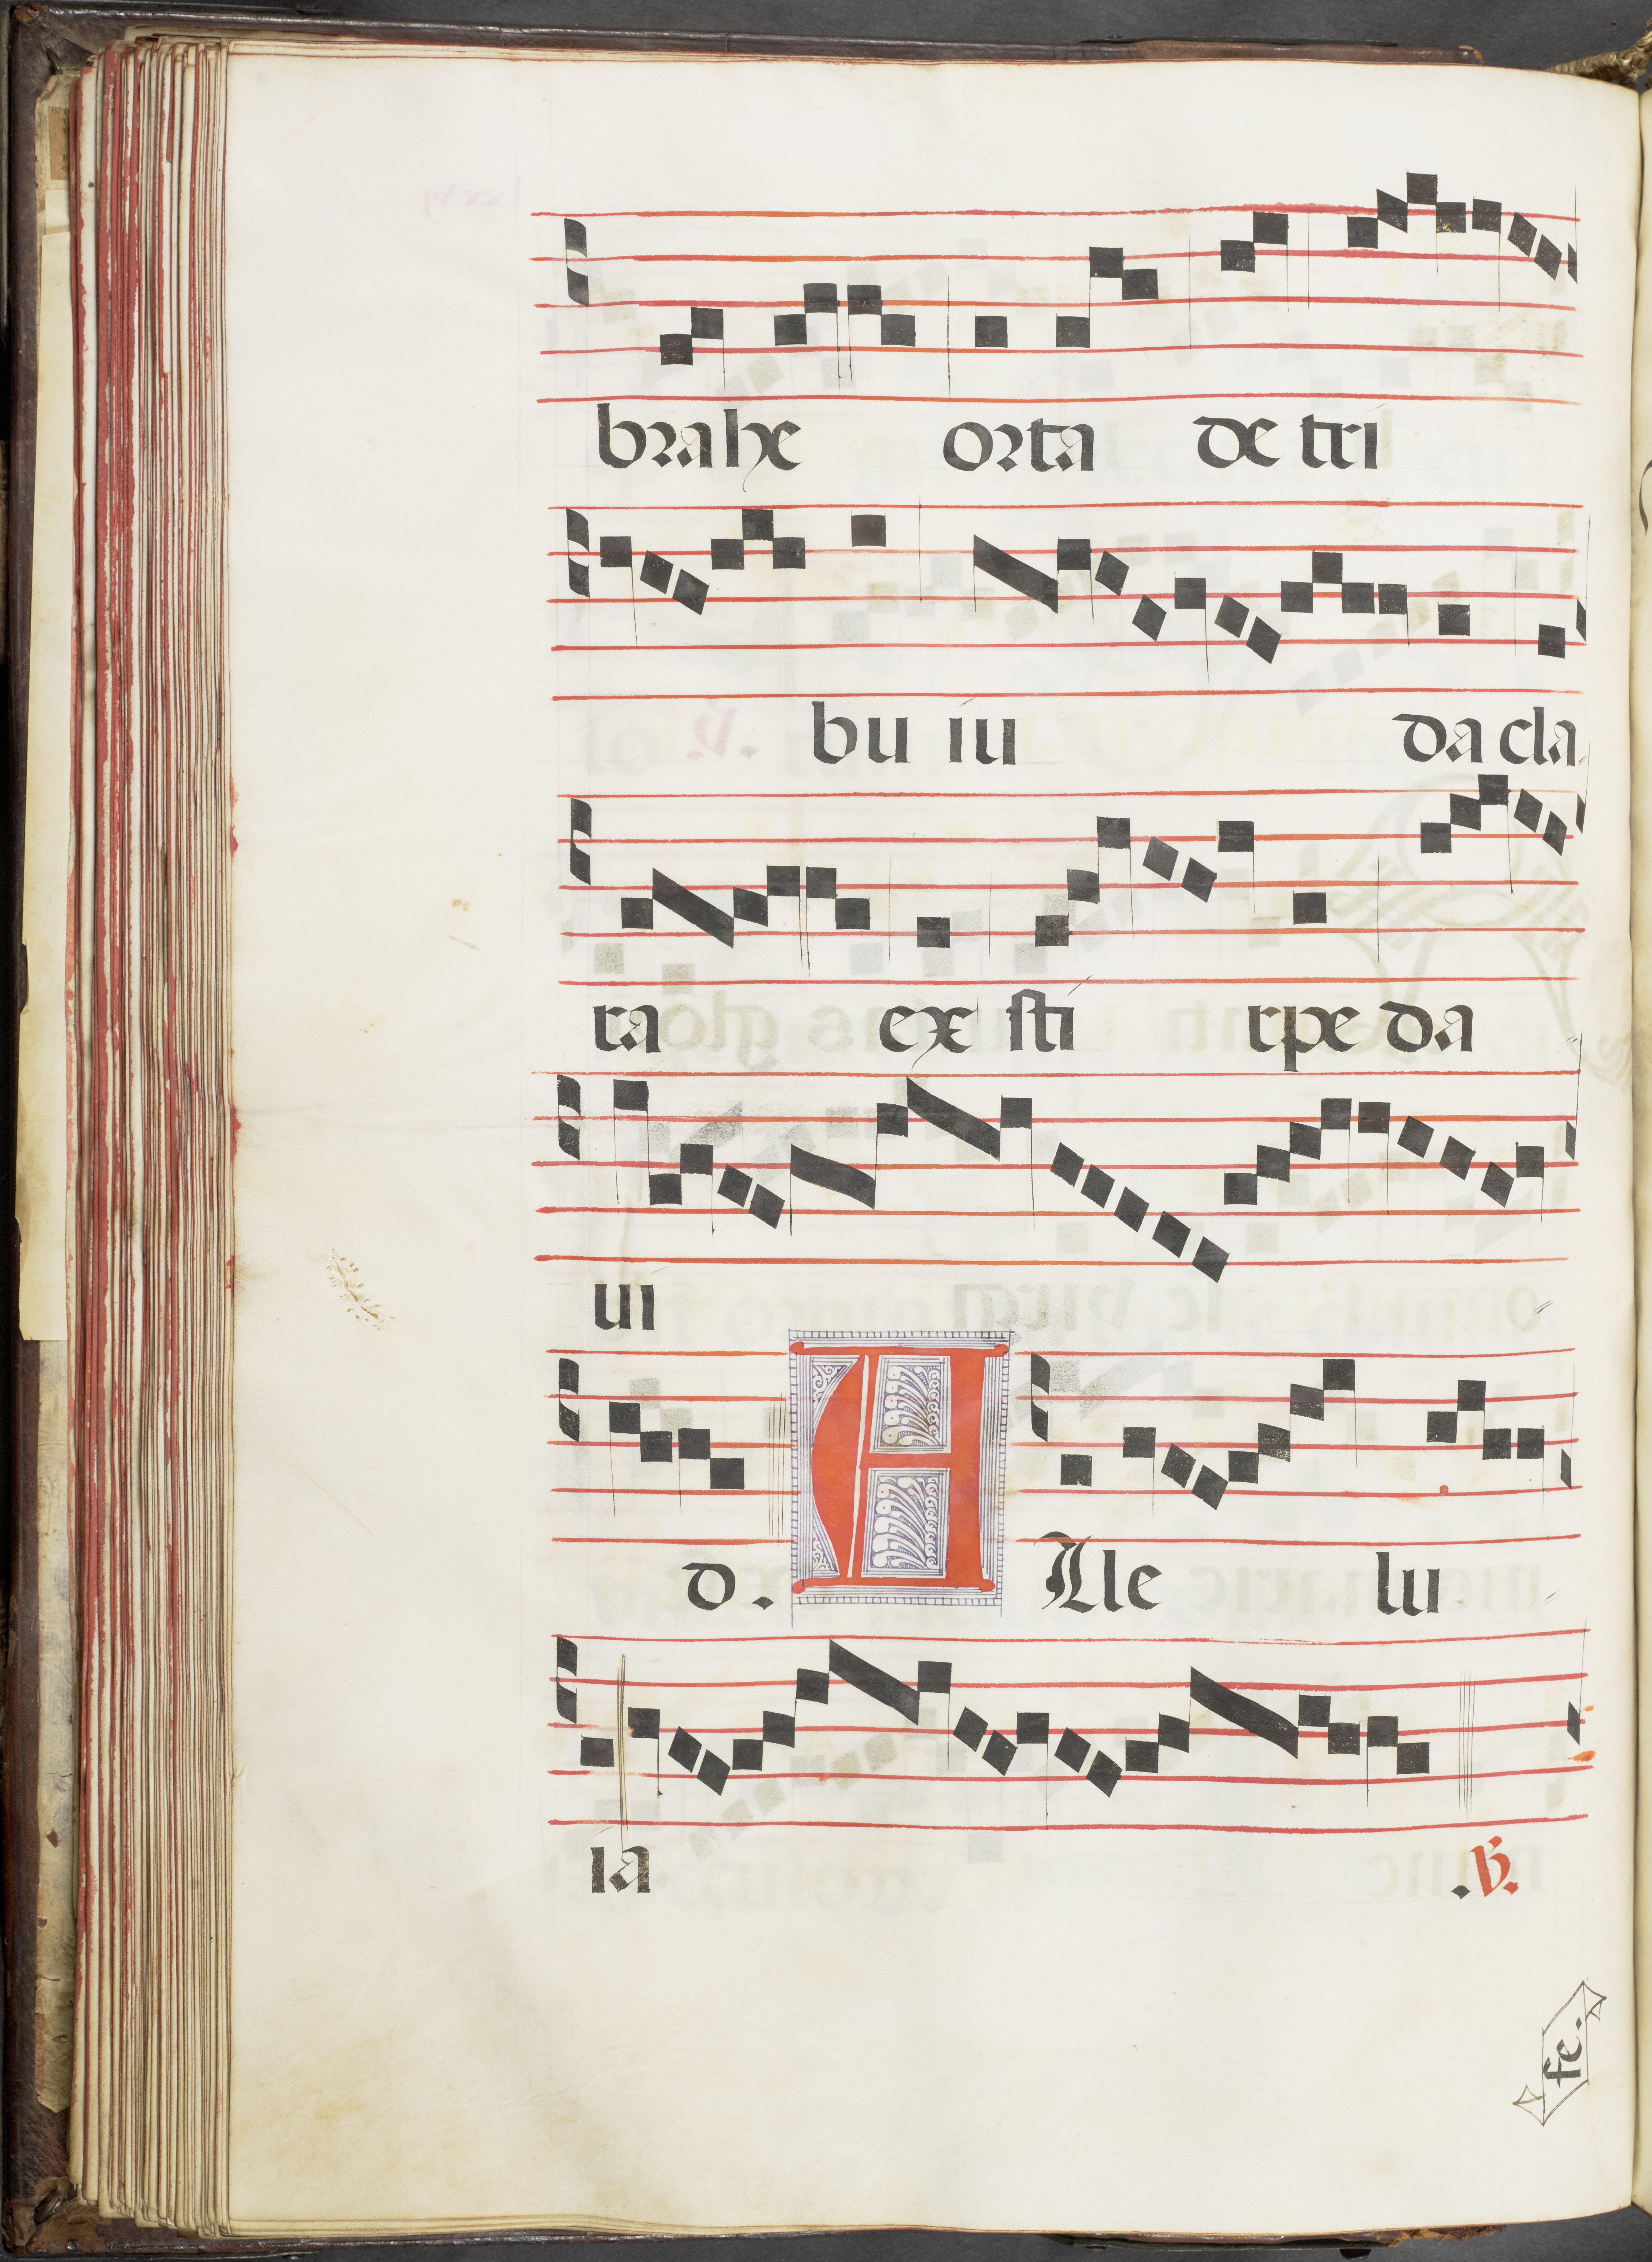 brahe orta de tri
bu iu da cla
ra ex sti rpe da
ui
d. A Lle lu
ia .℣.
fe.